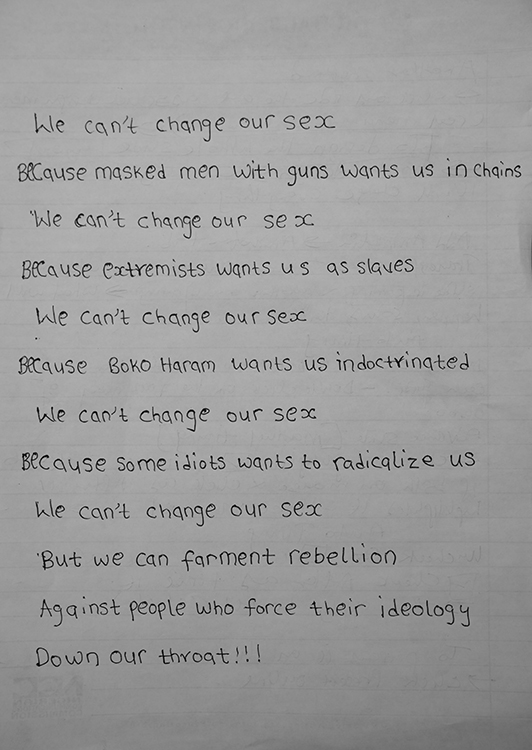 We can't change our sex
Because masked men with guns wants us in chains
We can't change our sex
Because extremists wants us as slaves
We can't change our sex
Because Boko Haram wants us indoctrinated
We can't change our sex
Because some idiots wants to radicalize us
We can't change our sex
But we can farment rebellion
Against people who force their ideology
Down our throat!!!